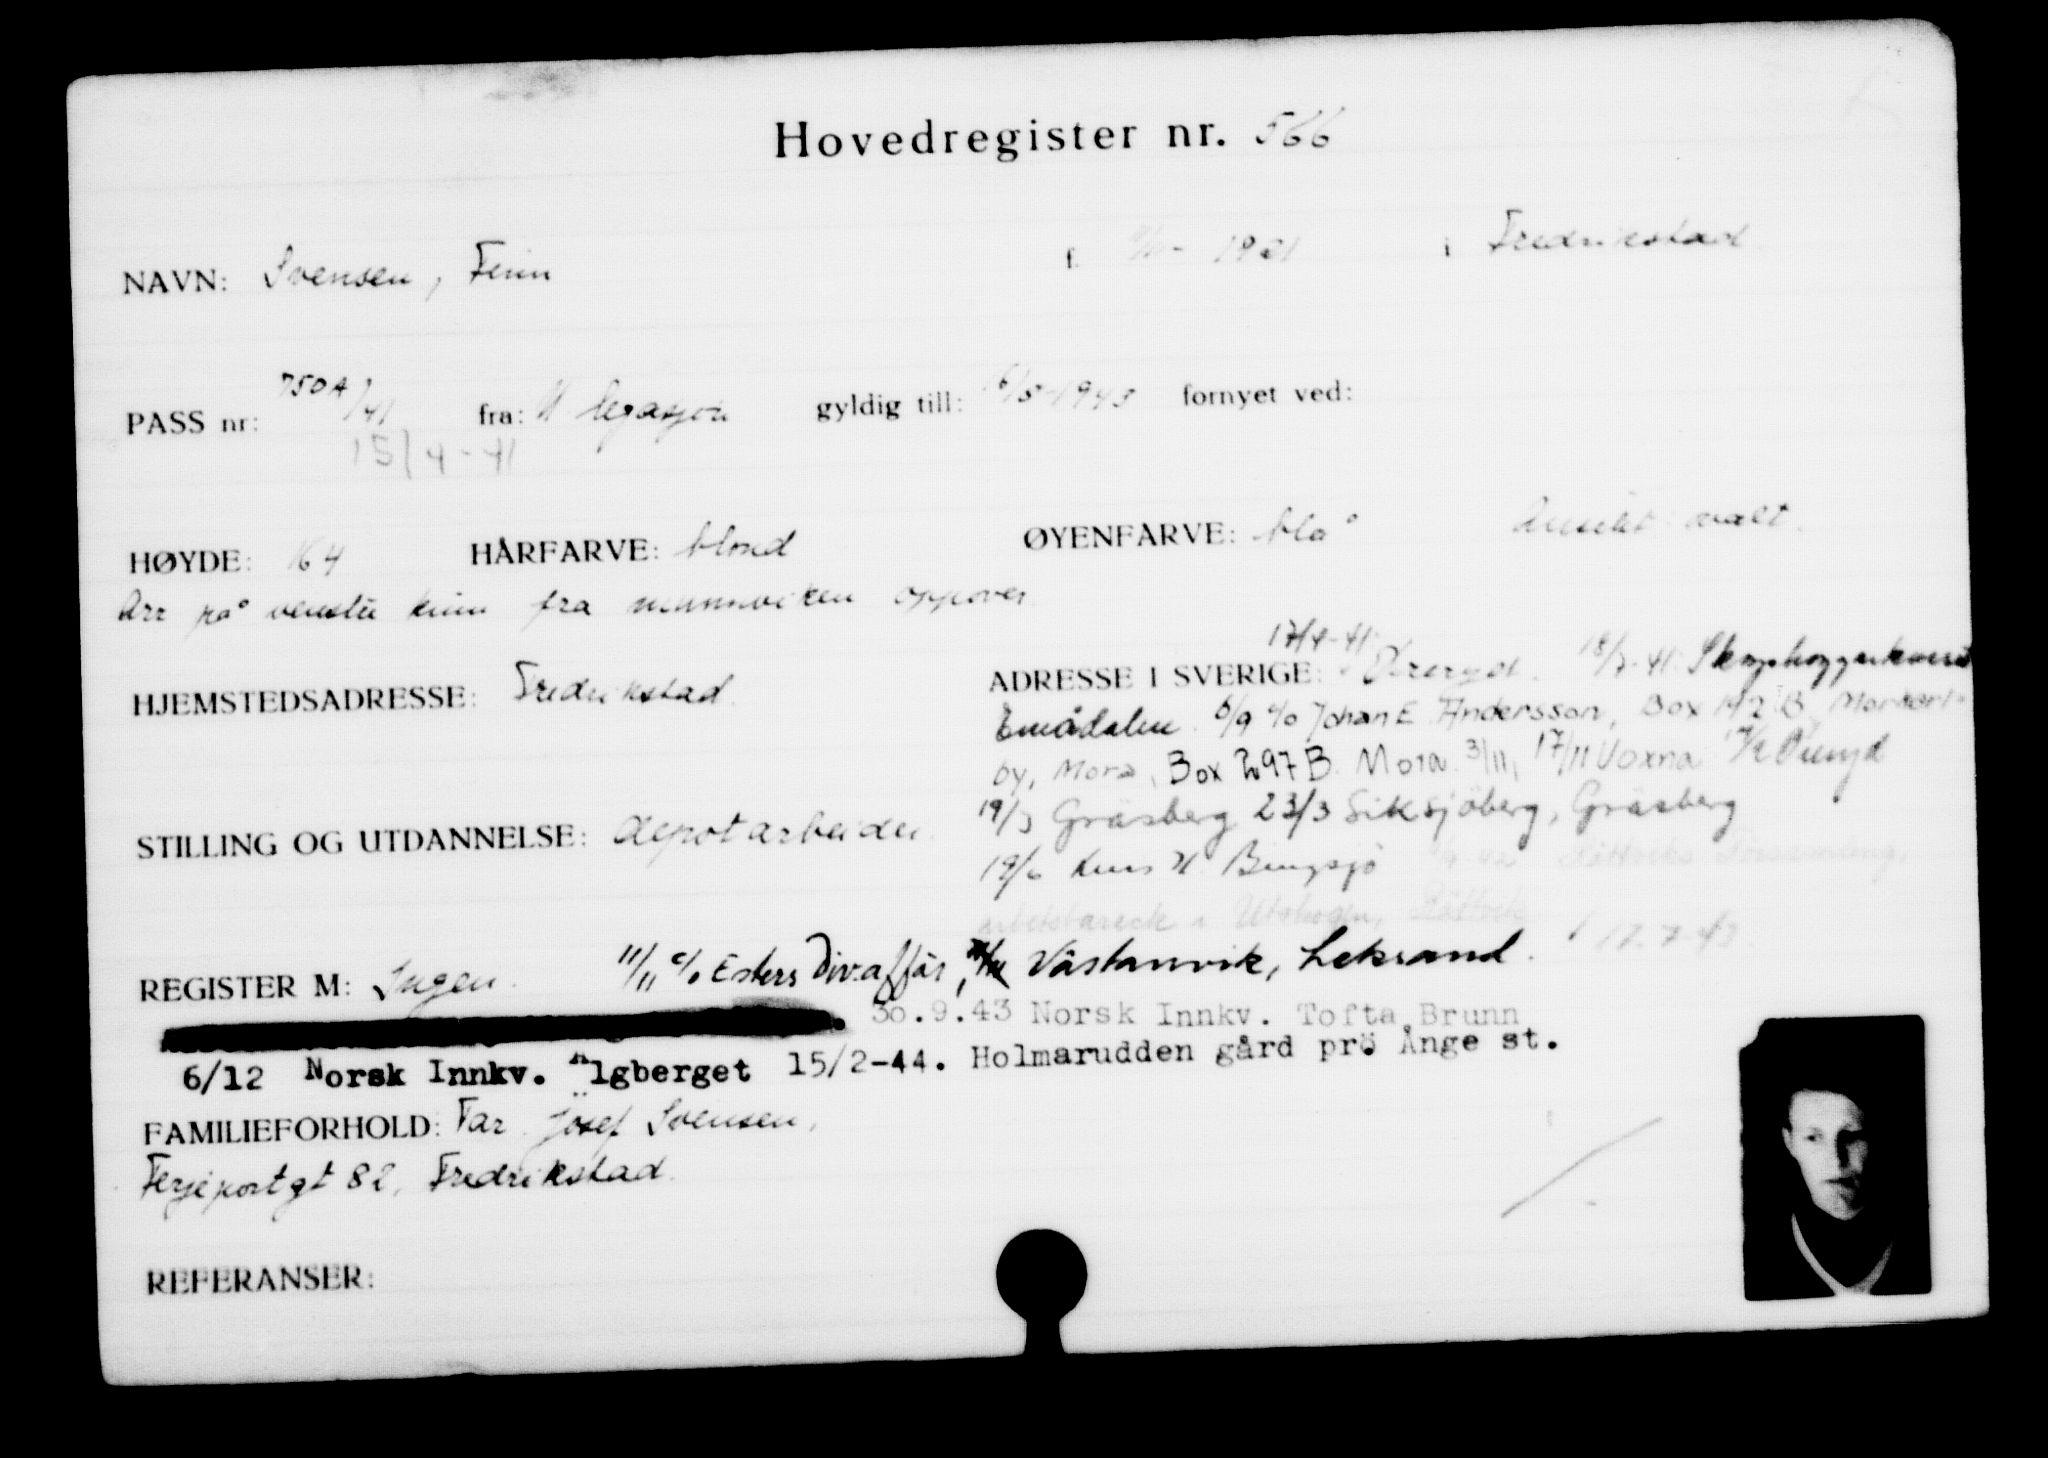 Hovedregister nr. 566
NAVN: Svensen, Finn f. 1921 i Fredrikstad
PASS nr: 750A/41 fra: N legasjon gyldig till: 6/5-1943 fornyet ved:
15/4-41
HØYDE: 164 HÅRFARVE: blond ØYENFARVE: blå Ansikt ovalt.
Arr på venstre kinn fra munnviken oppover
17/4-41
HJEMSTEDSADRESSE: Fredrikstad. ADRESSE I SVERIGE: Øreryd. 18/7-41 Skoghoggerkurs
Emådalen. 6/9 c/o Johan E. Andersson, Box 142 B,
by, Mora, Box 297 B. Mora. 3/11, 17/11 Voxna Øreryd
STILLING OG UTDANNELSE: depotarbeider. 19/3 Gräsberg 23/3 Siksjöberg, Gräsberg
19/6 Bingsjö Rättviks
i Utskogen, Rättvik 17.7.43
REGISTER M: Ingen. 11/11 c/o Esters Div.affär, Västanvik, Leksand.
30.9.43 Norsk Innkv. Tofta Brunn
6/12 Norsk Innkv. Älgberget 15/2-44. Holmarudden gård pr Ånge st.
FAMILIEFORHOLD: Far Josef Svensen,
Ferjeportgt 82, Fredrikstad.
REFERANSER: